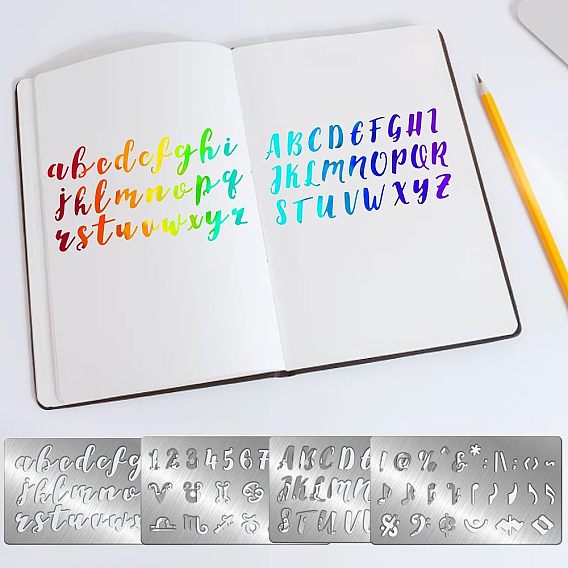 abcdefghi
jklmnopq
rstuvwxyz
ABCDEFGHI
JKLMNOPQR
STUVWXYZ
abcdefg
jklmno
rstuvw
1234567
ABCD
JKLM
STUV
!@%^&*:|\;()~